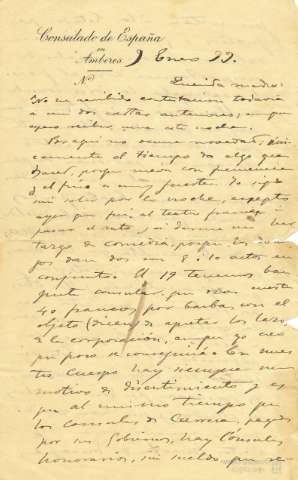 Consulado de España
en
Amberes 9 Enero 99.
Nº Querida madre:
No he recibido contestacion todavia
a mis dos cartas anteriores, aunque
espero recibir una esta noche.
Por aqui no ocurre novedad; úni-
camente el tiempo da algo que
hacer, porque nieva con frecuencia
y el frio es muy fuerte. Yo sigo
sin salir por la noche, excepto
ayer que fui al teatro francés
pasar el rato
largo de comedia, porque los
dan dos 8 ó 10 actos en
conjunto. El 19 tenemos ban-
quete consular, que nos cuesta
40 francos por barba, con el
objeto (dicen) de apretar los lazos
de la corporacion, aunque yo creo
que poco se conseguirá. En nues-
tro Cuerpo hay siempre un
motivo de disentimiento y es
que al mismo tiempo que
los consules de Carrera, pagados
por sus Gobiernos, hay Cónsules
honorarios, sin sueldo, que re-